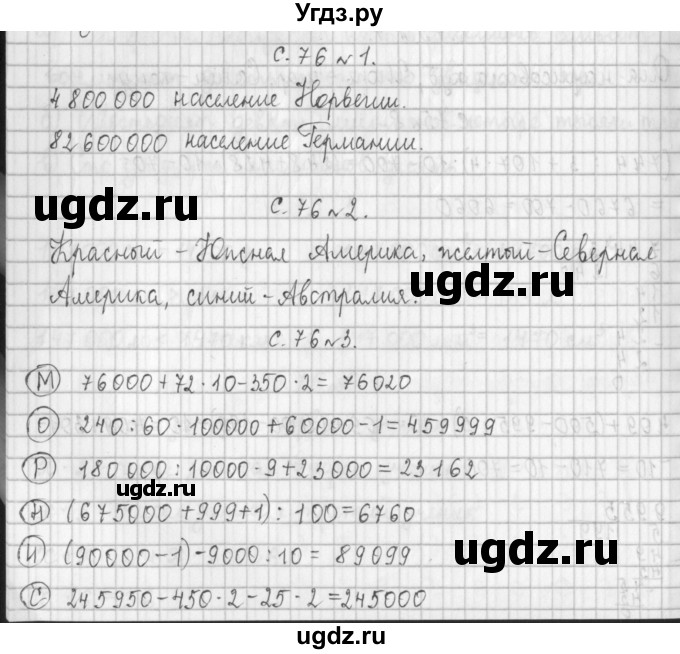 Угдз.ру
с. 76 №1.
4 800 000 население Норвегии.
82 600 000 население Германии.
ugdz.ru
с. 76 №2.
Красный - Южная Америка, желтый - Северная
Америка, синий - Австралия.
ugdz.ru
с. 76 №3.
М 76000+72·10-350·2= 76020
О 240:60·100000+60000-1=459999
ugdz.ru
Р 180000:10000·9+23000=23162
ugdz.ru
Н (675000+999+1):100=6760
И (90000-1)-9000:10= 89099
ugdz.ru
С 245950-450·2-25·2=245000
ugdz.ru